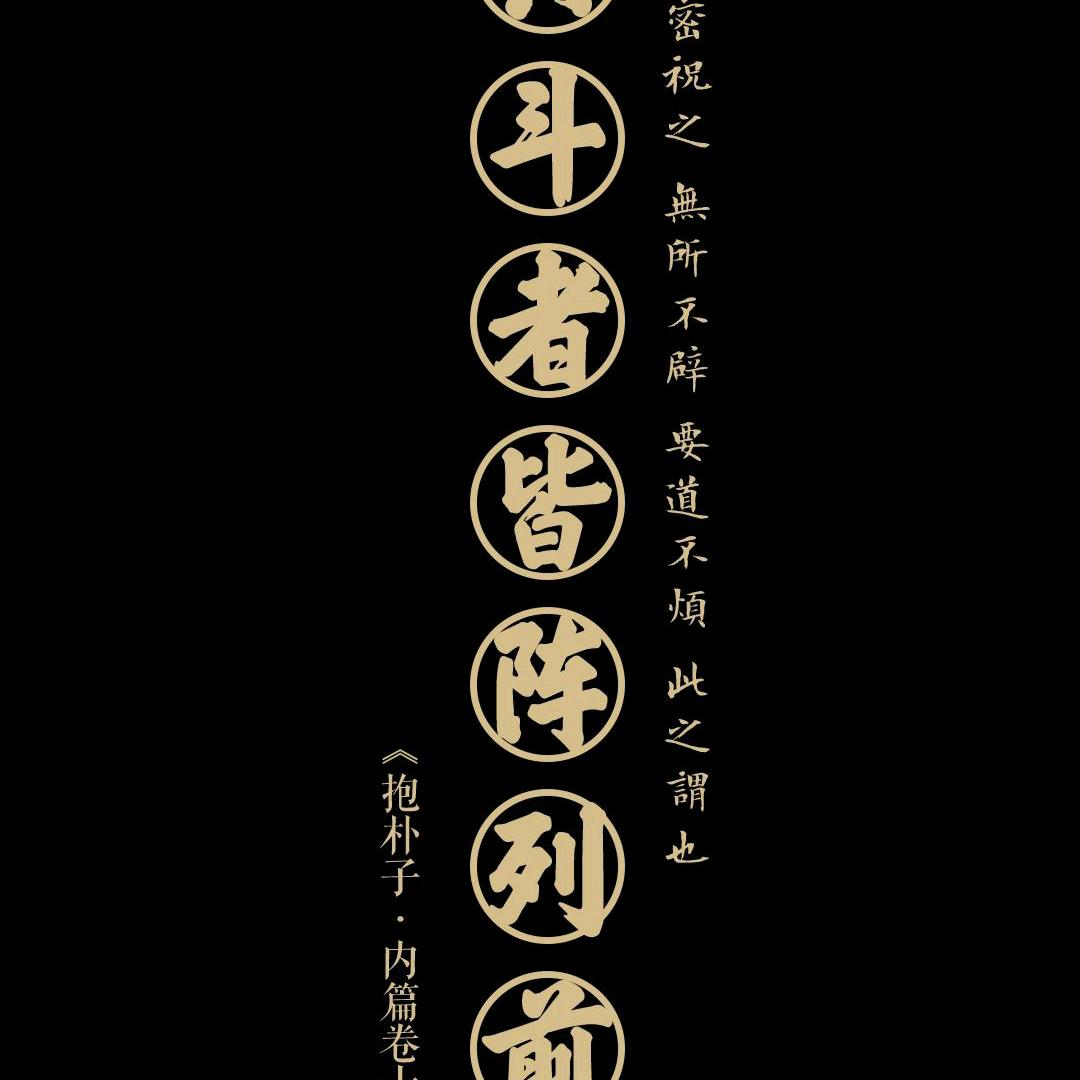 密祝之 無所不辟 要道不煩 此之謂也
斗者皆阵列前
《抱朴子·内篇卷